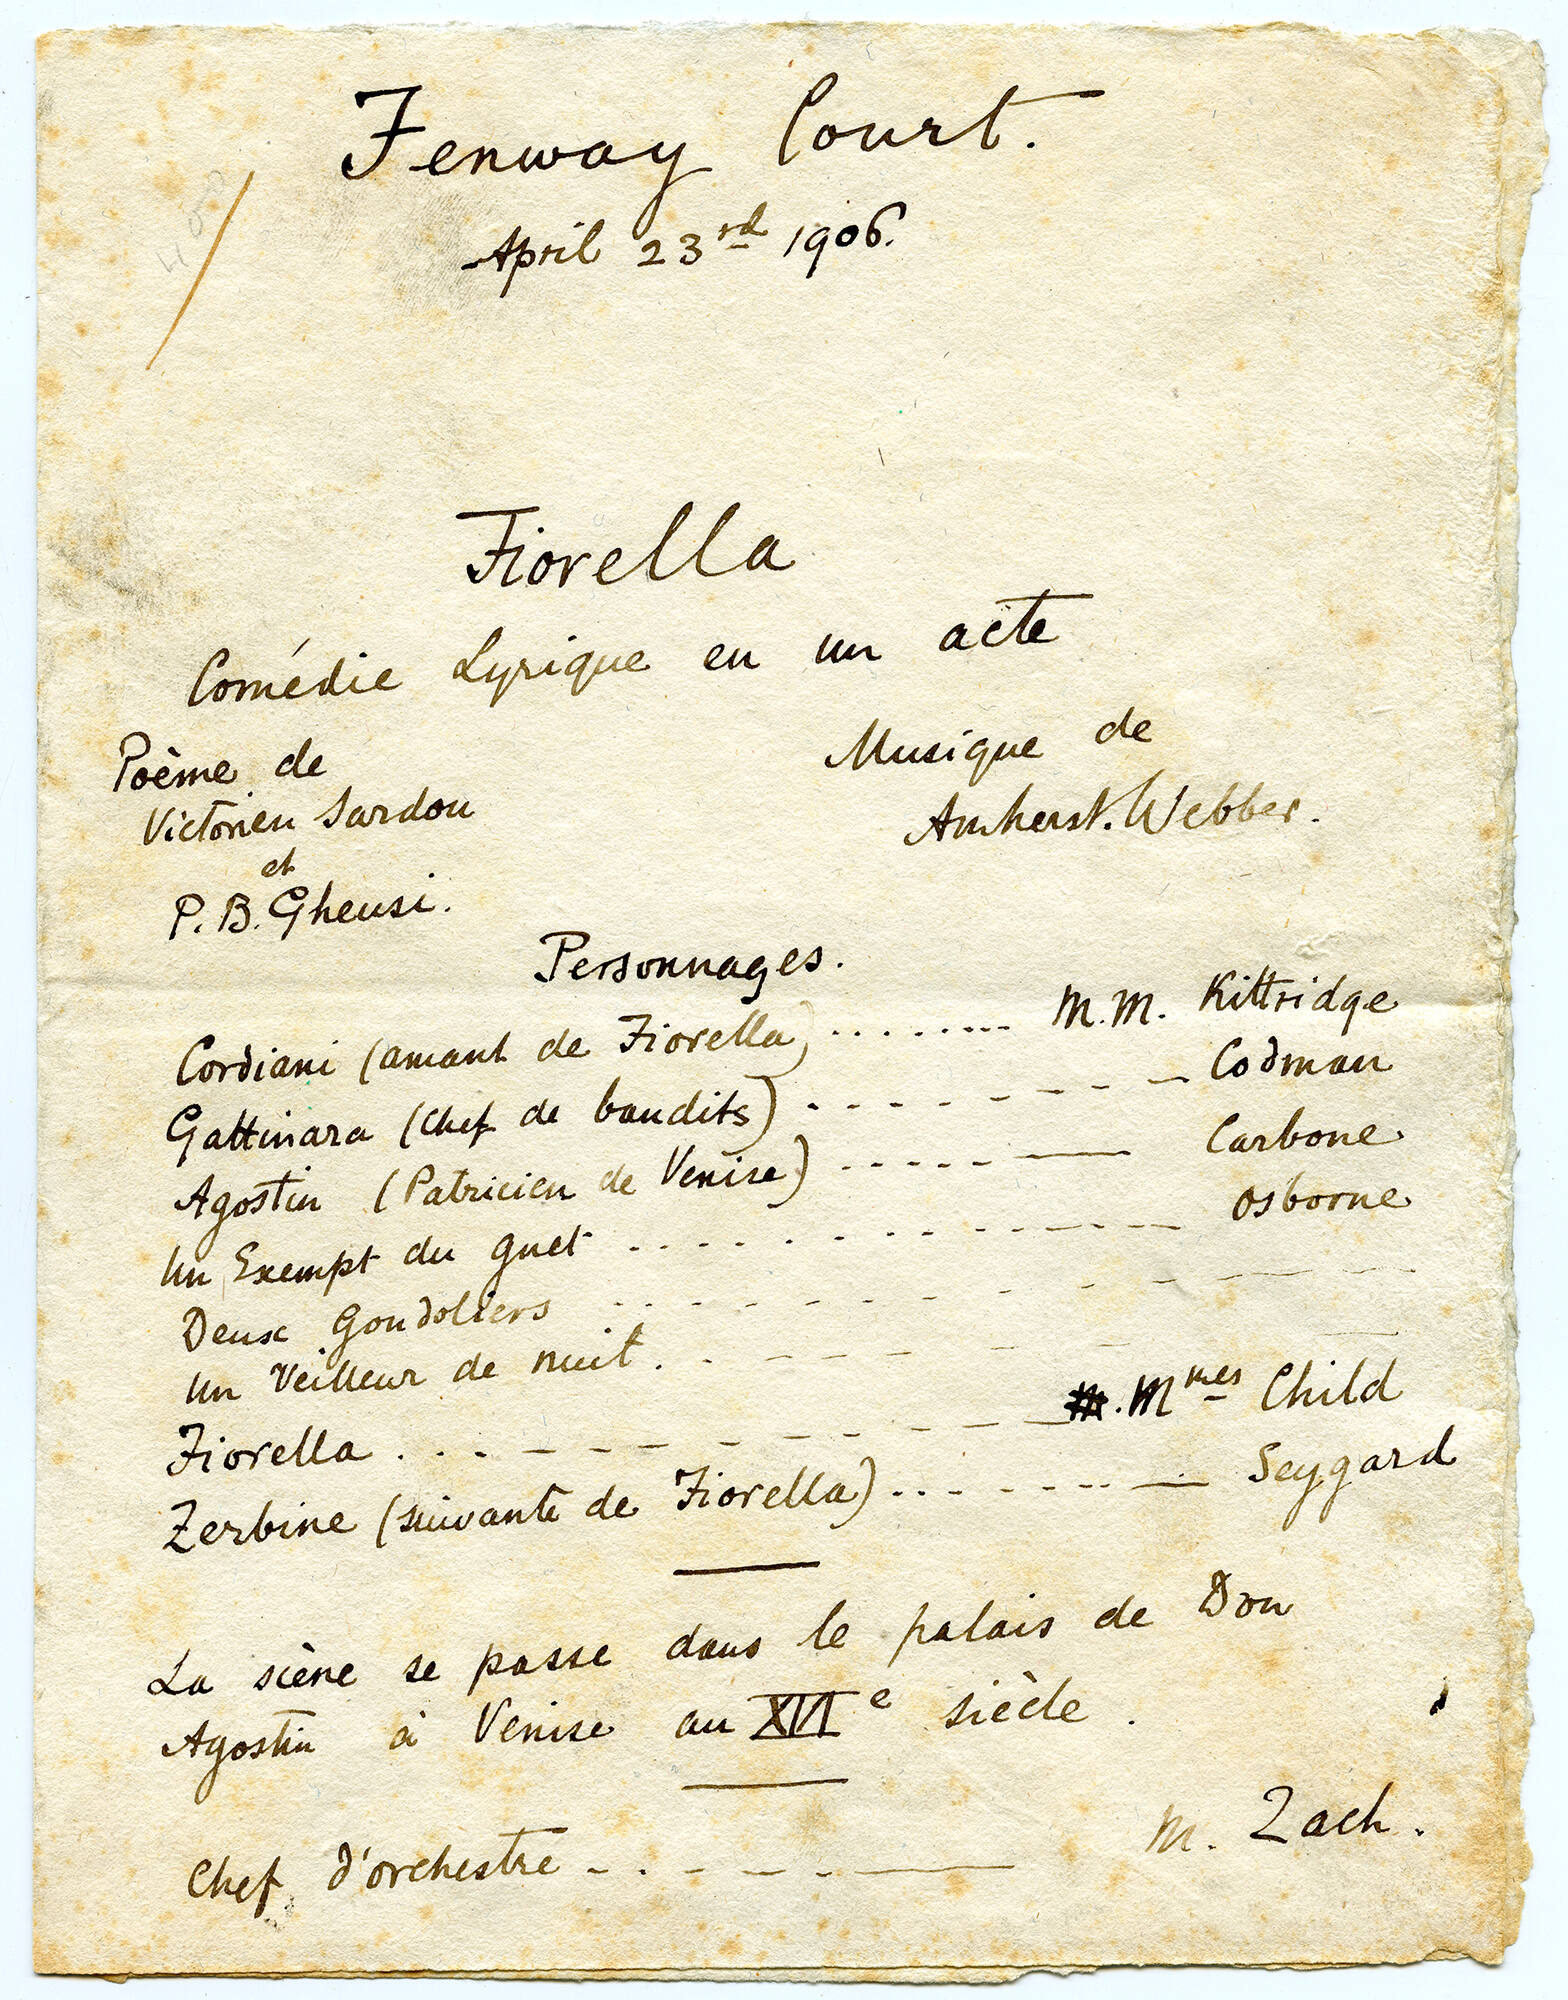 Fenway Court.
April 23rd 1906.
Fiorella
Comédie Lyrique en un acte
Poème de
Victorien Sardou
et
P. B. Gheusi.
Musique de
Amherst. Webber.
Personnages.
Cordiani (amant de Fiorella) ........ M.M. Kittridge
Gattinara (Chef de bandits) ........ Codman
Agostin (Patricien de Venise) ........ Carbone
Un Exempt du guet ........ Osborne
Deux Gondoliers ........
Un Veilleur de nuit ........
Fiorella ........ M.mes Child
Zerbine (suivante de Fiorella) ........ Seygard
La scène se passe dans le palais de Don
Agostin à Venise au XVIe siècle.
Chef d'orchestre ........ M. Zach.